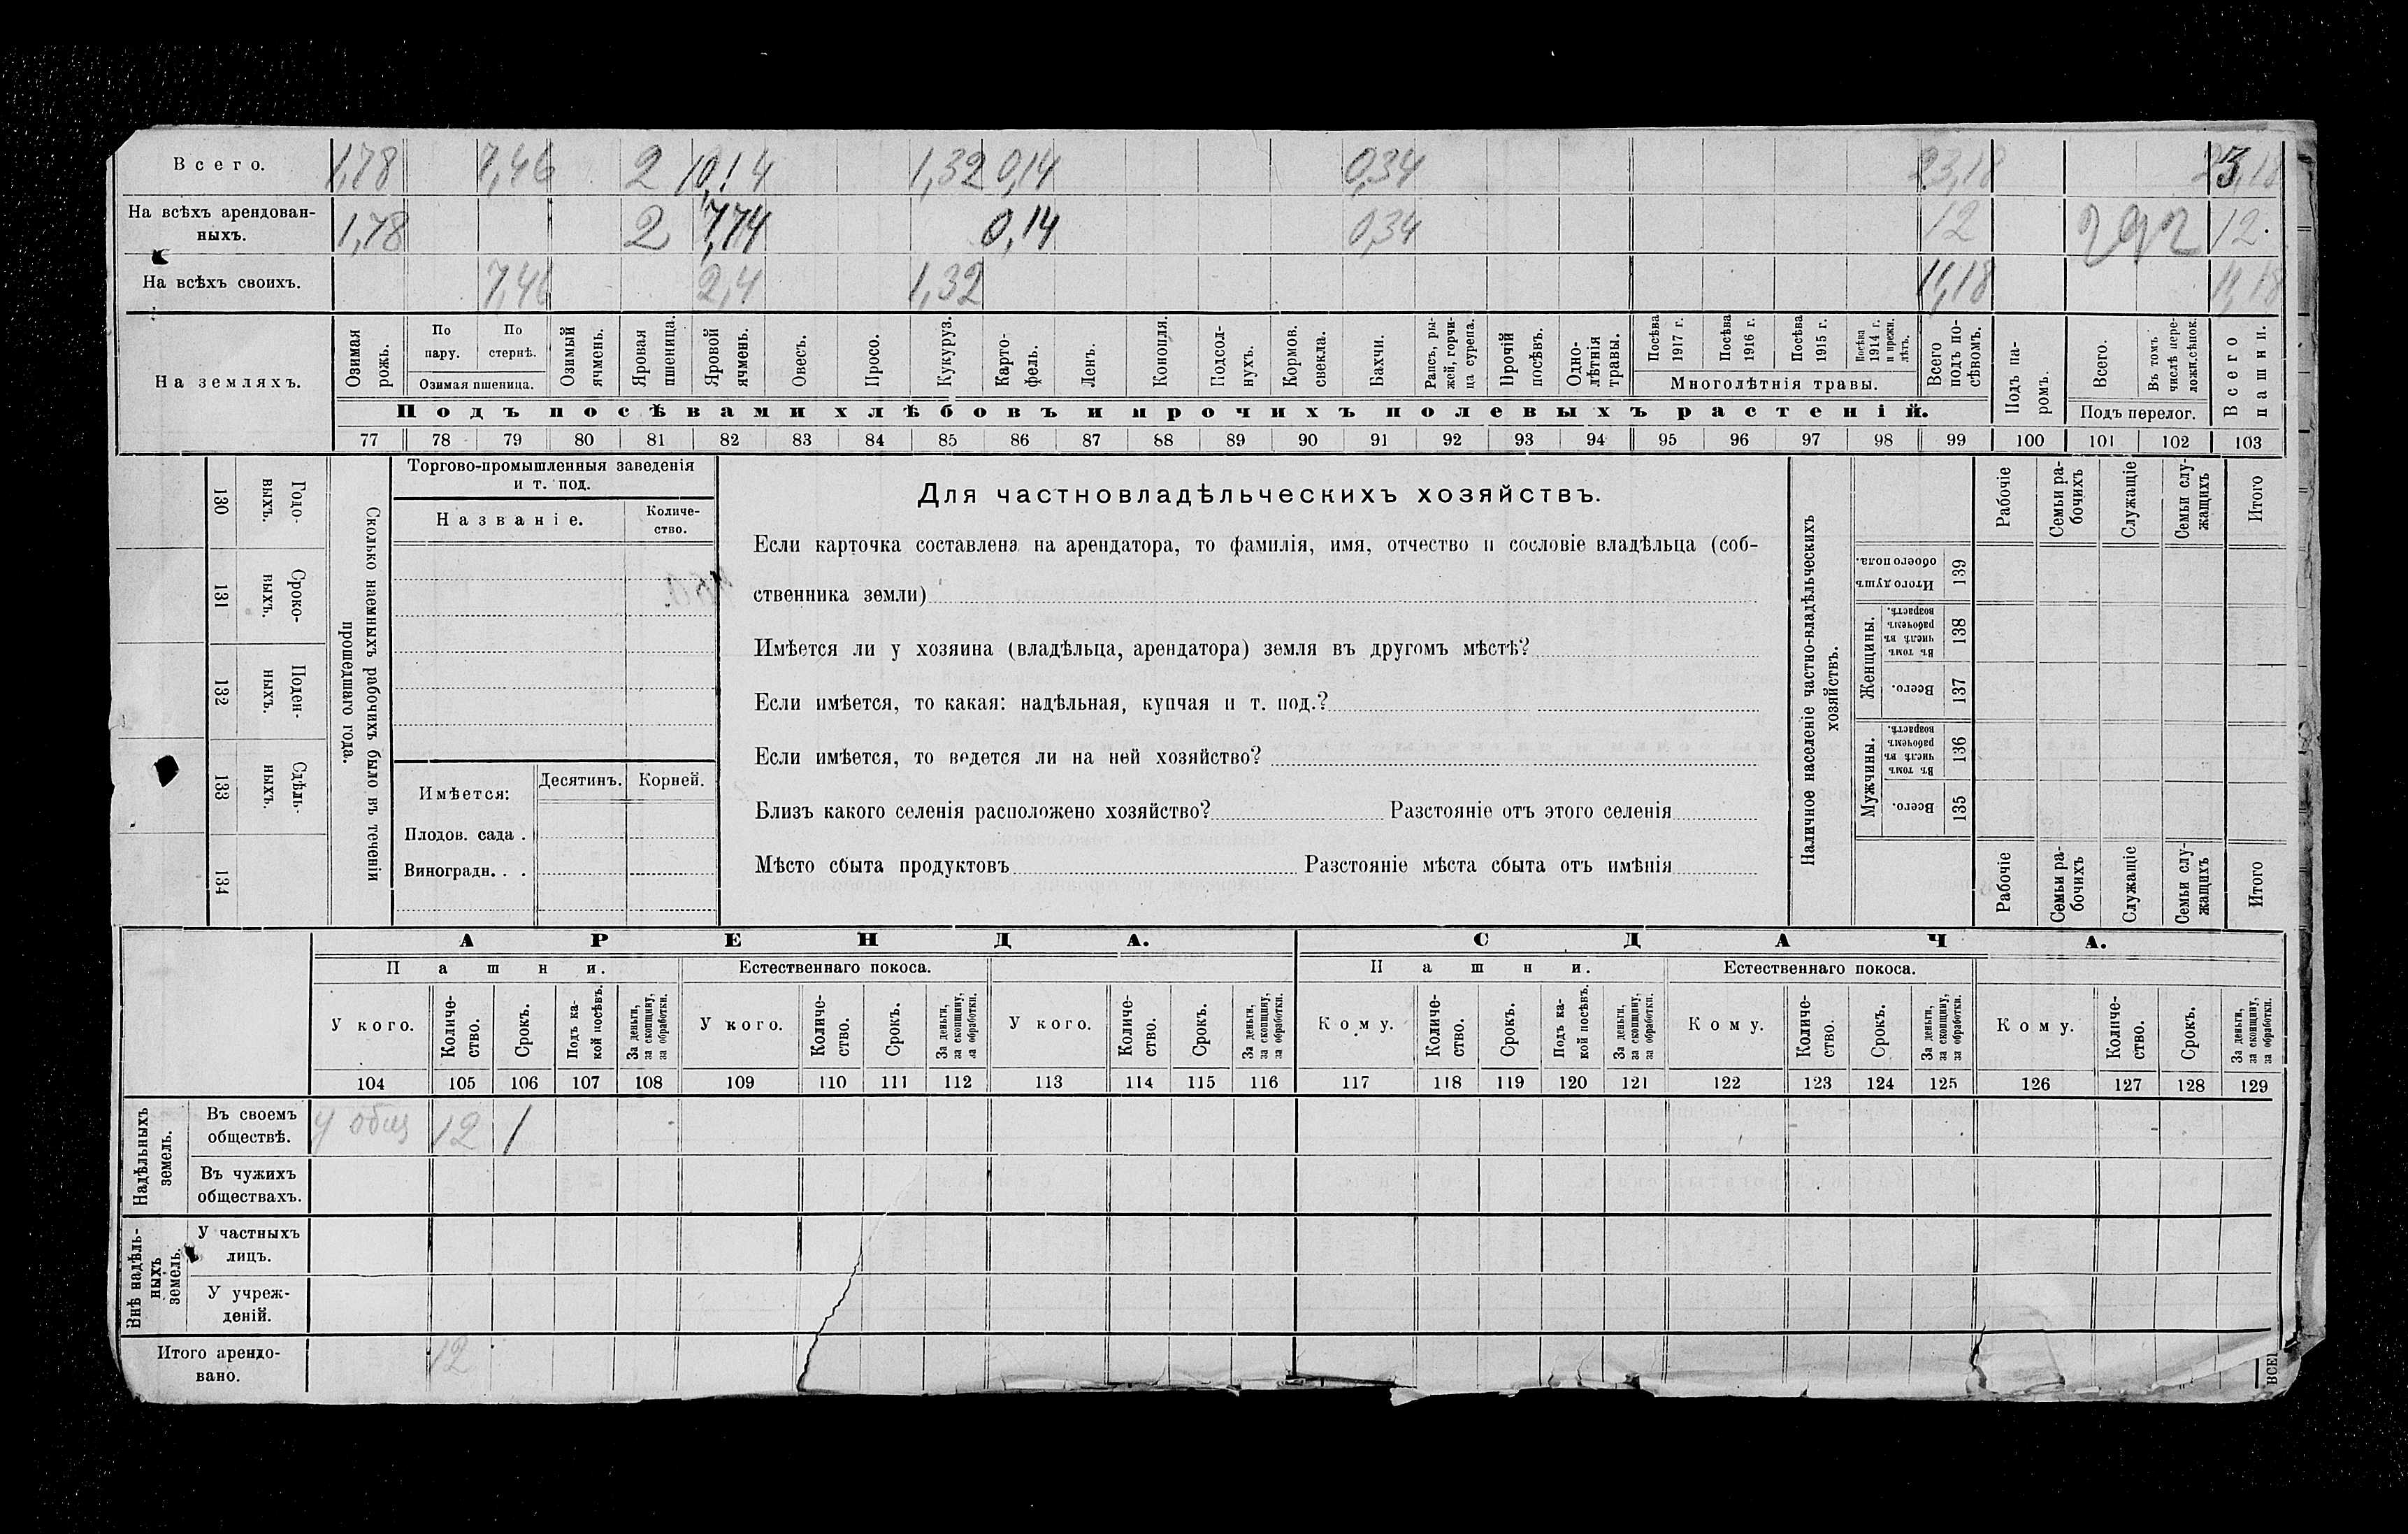 Всего. 1,78 7,46 2 10,14 1,32 0,14 0,34 23,18 23,18
На всѣхъ арендован-
ныхъ. 1,78 2 7,74 0,14 0,34 12 12.
На всѣхъ своихъ. 7,46 2,4 1,32 11,18 11,18
На земляхъ.
Озимая рожь.
По пару.
По стернѣ.
Озимая пшеница.
Озимый ячмень.
Яровая пшеница.
Яровой ячмень.
Овесъ.
Просо.
Кукуруз.
Карто-
фель.
Ленъ.
Конопля.
Подсол-
нухъ.
Кормов. свекла.
Бахчи.
Рапсъ, ры-
жей, горчи-
ца сурепа.
Прочій посѣвъ.
Одно-
лѣтнія травы.
Посѣва 1917 г.
Посѣва 1916 г.
Посѣва 1915 г.
Посѣва 1914 г. и прежн. лѣтъ.
Многолѣтнія травы.
Всего подъ по-
сѣвомъ.
Подъ па-
ромъ.
Всего.
Въ томъ числѣ пере-
ложн.сѣнок.
Подъ перелог.
Всего пашни.
Подъ посѣвами хлѣбовъ и прочихъ полевыхъ растеній.
77 78 79 80 81 82 83 84 85 86 87 88 89 90 91 92 93 94 95 96 97 98 99 100 101 102 103
130 Годо-
выхъ.
131 Сроко-
выхъ.
132 Поден-
ныхъ.
133 Сдѣль-
ныхъ.
134
Сколько наемныхъ рабочихъ было въ теченіи
прошедшаго года.
Торгово-промышленныя заведенія
и т. под.
Названіе.
Количе-
ство.
Имѣется: Десятинъ. Корней.
Плодов. сада .
Виноградн. . .
Для частновладѣльческихъ хозяйствъ.
Если карточка составлена на арендатора, то фамилія, имя, отчество и сословіе владѣльца (соб-
ственника земли)
Имѣется ли у хозяина (владѣльца, арендатора) земля въ другомъ мѣстѣ?
Если имѣется, то какая: надѣльная, купчая и т. под.?
Если имѣется, то ведется ли на ней хозяйство?
Близъ какого селенія расположено хозяйство? Разстояніе отъ этого селенія
Мѣсто сбыта продуктовъ Разстояніе мѣста сбыта отъ имѣнія
Наличное населеніе частно-владѣльческихъ
хозяйствъ.
Рабочіе
Семьи ра-
бочихъ
Служащіе
Семьи слу-
жащихъ
Итого
Итого душъ обоего пола. 139
Женщины.
Въ томъ числѣ въ рабочемъ возрастѣ. 138
Всего. 137
Мужчины.
Въ томъ числѣ въ рабочемъ возрастѣ. 136
Всего. 135
Рабочіе
Семьи ра-
бочихъ
Служащіе
Семьи слу-
жащихъ
Итого
АРЕНДА. СДАЧА.
Пашни. Естественнаго покоса. Пашни. Естественнаго покоса.
У кого.
Количе-
ство.
Срокъ.
Подъ ка-
кой посѣвъ.
За деньги, за скопщину, за обработки.
У кого.
Количе-
ство.
Срокъ.
За деньги, за скопщину, за обработки.
У кого.
Количе-
ство.
Срокъ.
За деньги, за скопщину, за обработки.
Кому.
Количе-
ство.
Срокъ.
Подъ ка-
кой посѣвъ.
За деньги, за скопщину, за обработки.
Кому.
Количе-
ство.
Срокъ.
За деньги, за скопщину, за обработки.
Кому.
Количе-
ство.
Срокъ.
За деньги, за скопщину, за обработки.
104 105 106 107 108 109 110 111 112 113 114 115 116 117 118 119 120 121 122 123 124 125 126 127 128 129
Надѣльныхъ земель.
Въ своемъ
обществѣ. У общ 12 1
Въ чужихъ
обществахъ.
Внѣ надѣль-
ныхъ земель.
У частныхъ
лицъ.
У учреж-
деній.
Итого арендо-
вано. 12